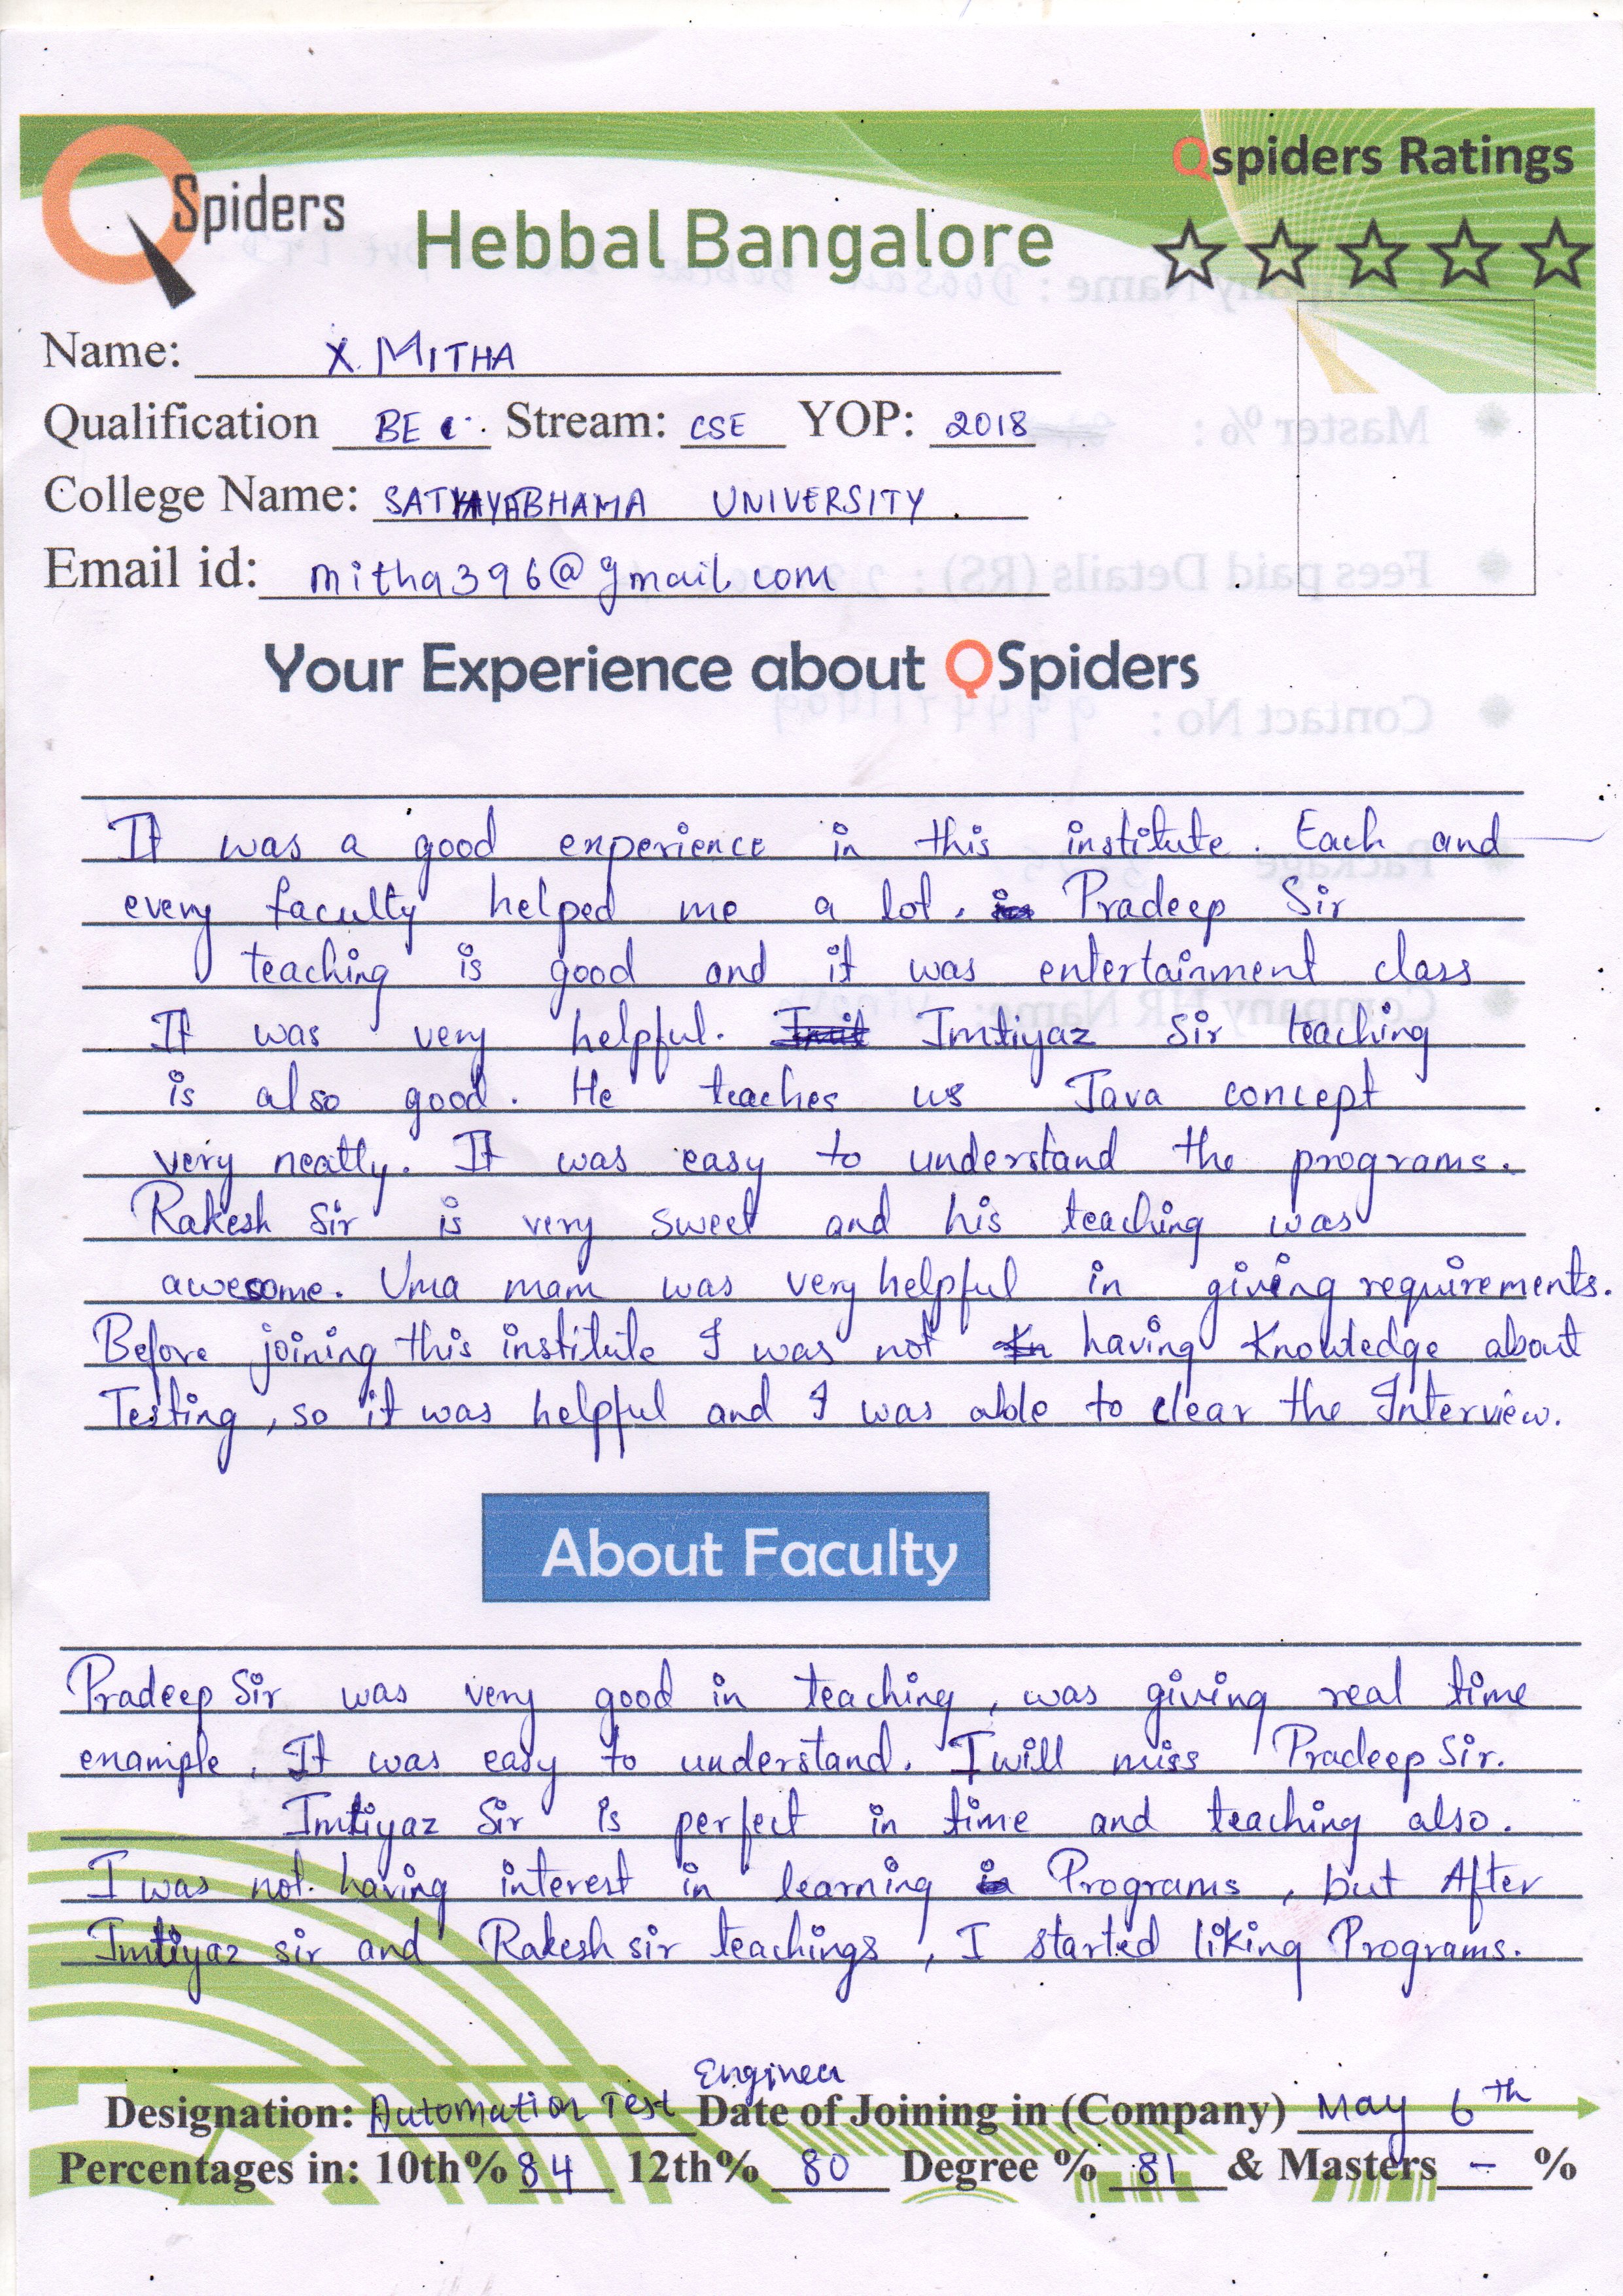 QSpiders
Qspiders Ratings
Hebbal Bangalore
Name: X. MITHA
Qualification BE Stream: CSE YOP: 2018
College Name: SATHYABHAMA UNIVERSITY.
Email id: mitha396@gmail.com
Your Experience about QSpiders
It was a good experience in this institute. Each and
every faculty helped me a lot. Pradeep Sir
teaching is good and it was entertainment class
It was very helpful. Imtiyaz Sir teaching
is also good. He teaches us Java concept
very neatly. It was easy to understand the programs.
Rakesh Sir is very sweet and his teaching was
awesome. Uma mam was very helpful in giving requirements.
Before joining this institute I was not having Knowledge about
Testing, so it was helpful and I was able to clear the Interview.
About Faculty
Pradeep Sir was very good in teaching, was giving real time
example. It was easy to understand. I will miss Pradeep Sir.
Imtiyaz Sir is perfect in time and teaching also.
I was not having interest in learning Programs, but After
Imtiyaz sir and Rakesh sir teachings, I started liking Programs.
Designation: Automation Test Engineer Date of Joining in (Company) May 6th
Percentages in: 10th% 84 12th% 80 Degree % 81 & Masters - %